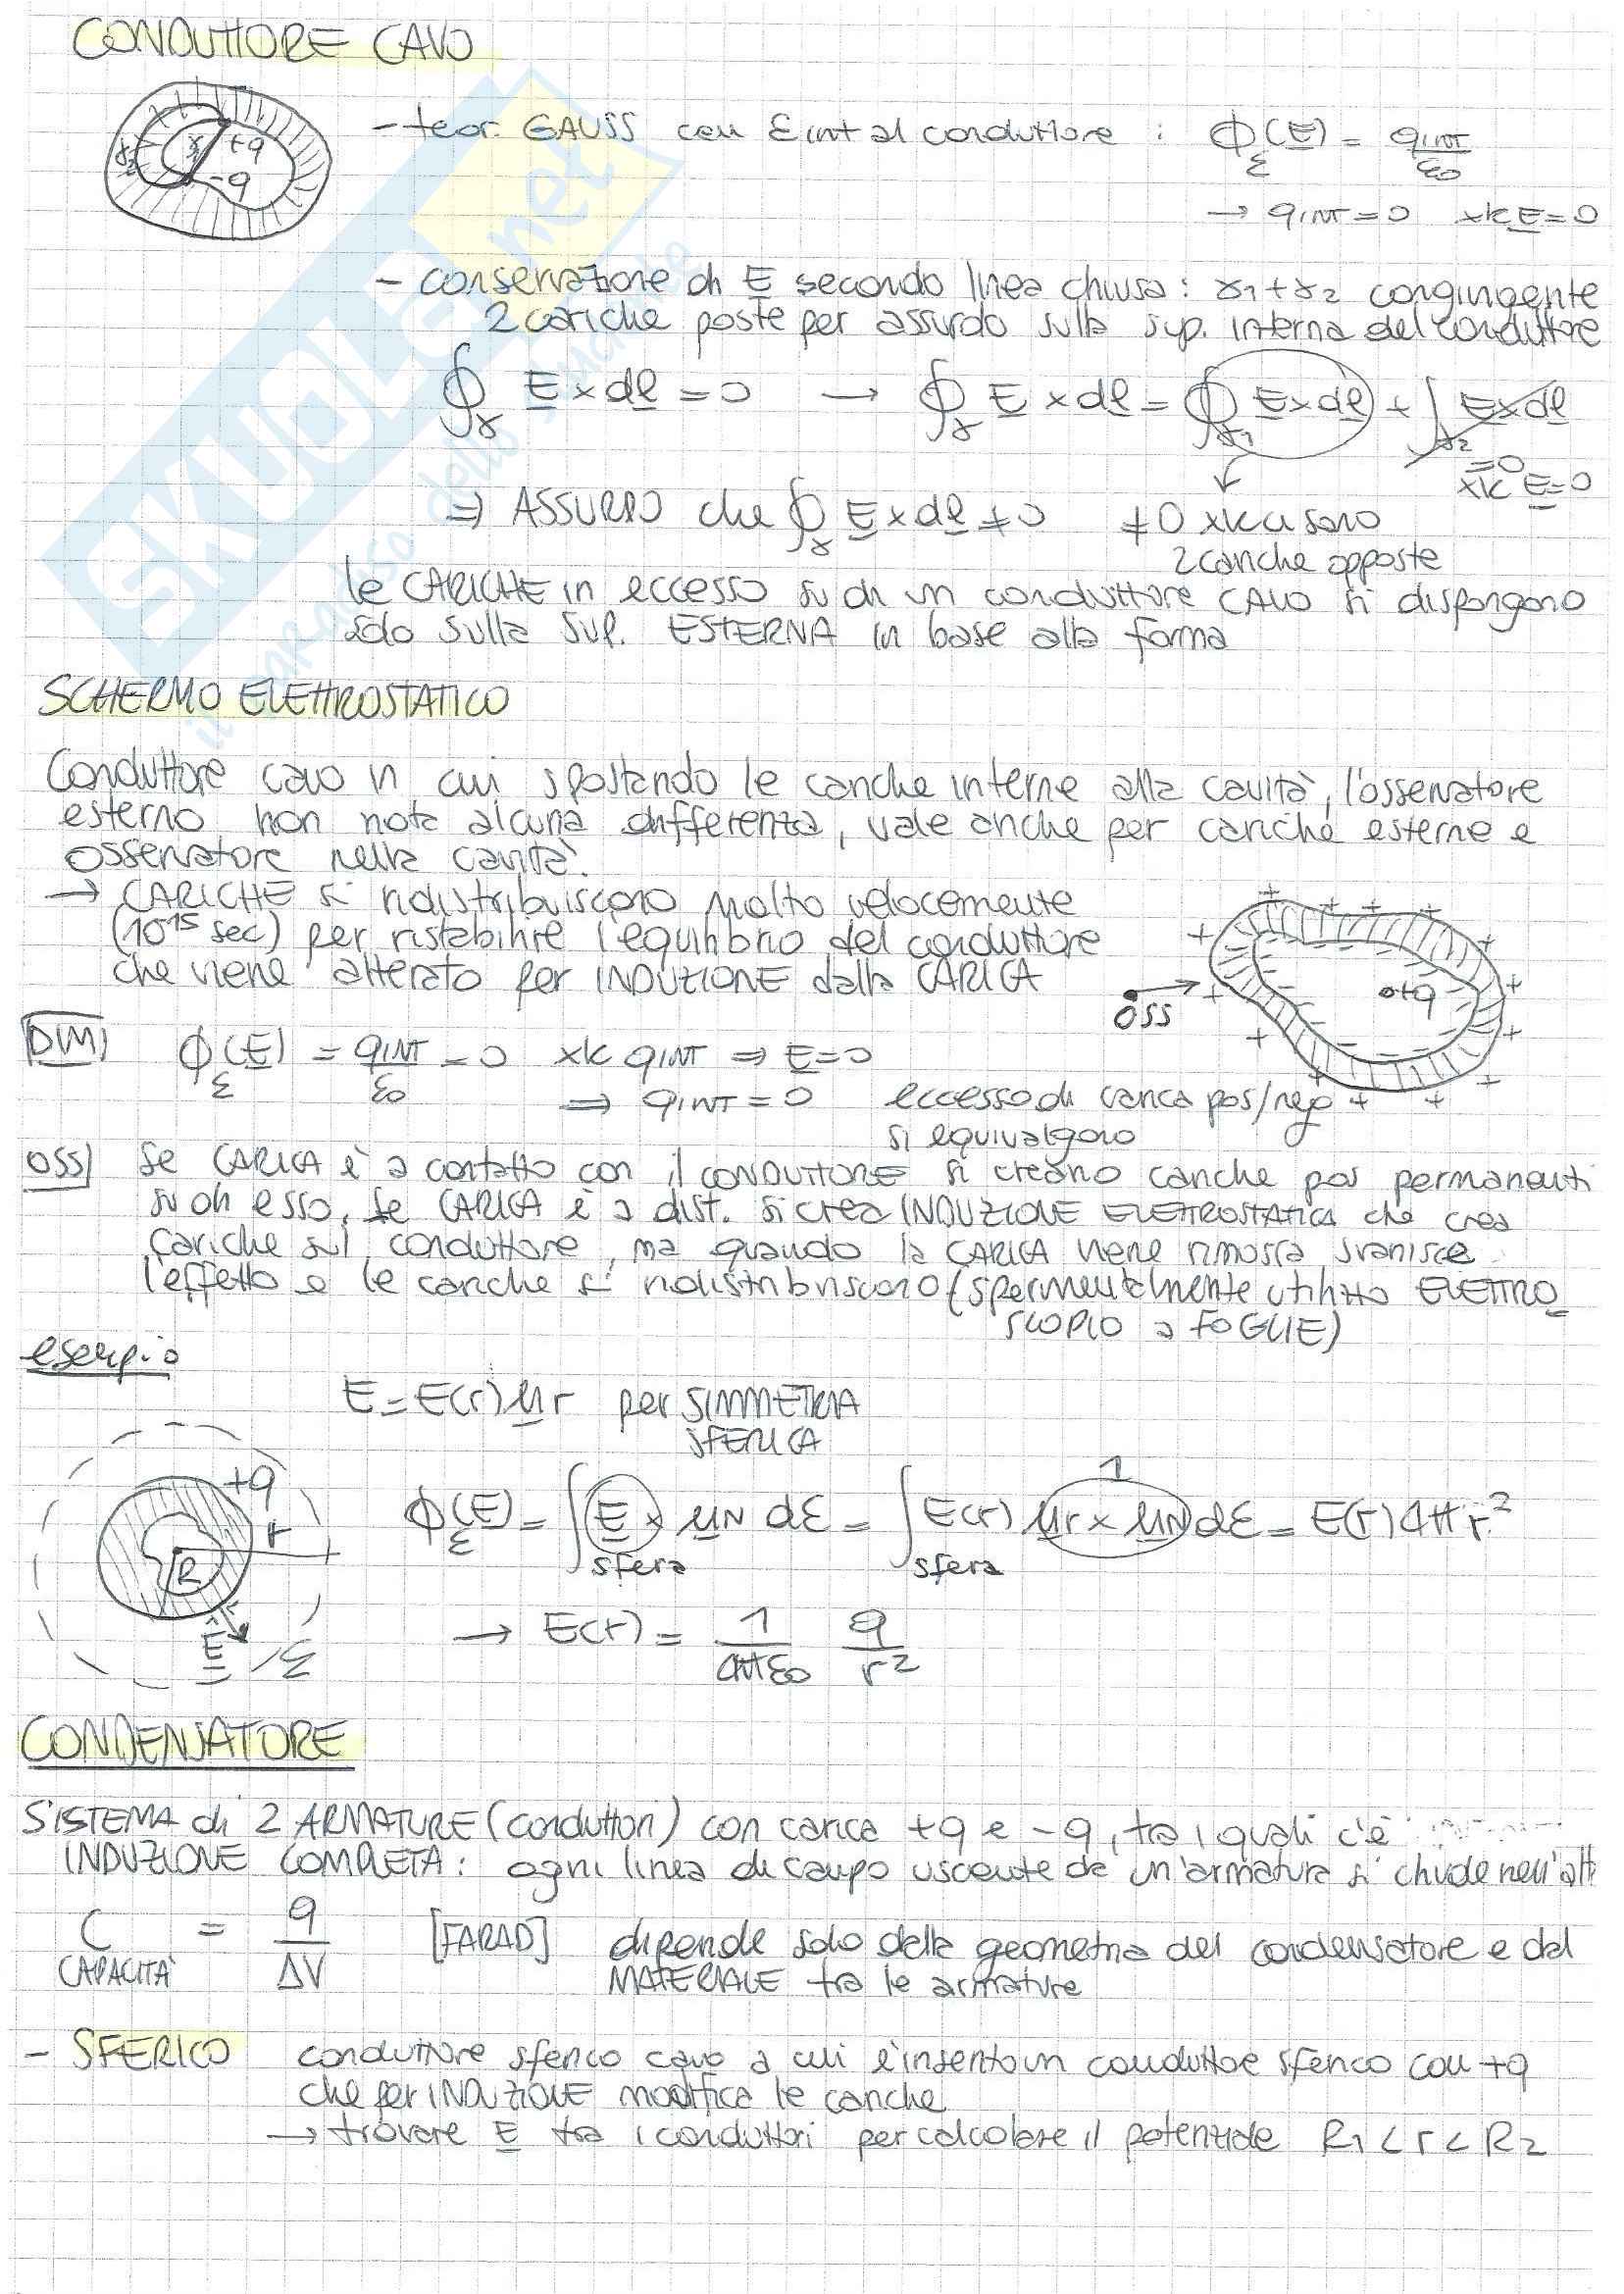 CONDUTTORE CAVO
- teor. GAUSS con Σ int al conduttore : Φ_Σ(E) = q_INT/ε0
+q
-q
γ1
γ2
→ q_INT = 0 xk E = 0
- conservazione di E secondo linea chiusa : γ1+γ2 congiungente
2 cariche poste per assurdo sulla sup. interna del conduttore
∮_γ E × dl = 0 → ∮_γ E × dl = ∮_γ1 E × dl + ∫_γ2 E × dl
= 0
xk E = 0
⇒ ASSURDO che ∮_γ E × dl ≠ 0 ≠ 0 xk ci sono
2 cariche opposte
le CARICHE in eccesso su di un conduttore CAVO si dispongono
solo sulla sup. ESTERNA in base alla forma
SCHERMO ELETTROSTATICO
Conduttore cavo in cui spostando le cariche interne alla cavità, l'osservatore
esterno non nota alcuna differenza, vale anche per cariche esterne e
osservatore nella cavità.
→ CARICHE si ridistribuiscono molto velocemente
(10^15 sec) per ristabilire l'equilibrio del conduttore
che viene alterato per INDUZIONE dalla CARICA
+q
OSS
DIM) Φ_Σ(E) = q_INT/ε0 = 0 xk q_INT ⇒ E = 0
⇒ q_INT = 0 eccesso di carica pos/neg
si equivalgono
OSS) Se CARICA è a contatto con il CONDUTTORE si creano cariche pos permanenti
su di esso, se CARICA è a dist. si crea INDUZIONE ELETTROSTATICA che crea
cariche sul conduttore, ma quando la CARICA viene rimossa svanisce
l'effetto e le cariche si ridistribuiscono (sperimentalmente utilizzo ELETTRO
SCOPIO a FOGLIE)
esempio
E = E(r) μr per SIMMETRIA
SFERICA
+q
r
R
E
Σ
Φ_Σ(E) = ∫_sfera E × μN dΣ = ∫_sfera E(r) μr × μN dΣ = E(r) 4π r²
1
→ E(r) = 1/4πε0 q/r²
CONDENSATORE
SISTEMA di 2 ARMATURE (conduttori) con carica +q e -q, tra i quali c'è
INDUZIONE COMPLETA : ogni linea di campo uscente da un'armatura si chiude nell'alt
C = q/ΔV [FARAD] dipende solo dalla geometria del condensatore e dal
CAPACITÀ MATERIALE tra le armature
- SFERICO conduttore sferico cavo a cui è inserito un conduttore sferico con +q
che per INDUZIONE modifica le cariche
→ trovare E tra i conduttori per calcolare il potenziale R1 < r < R2
SKUOLA.net
il paradiso dello studente